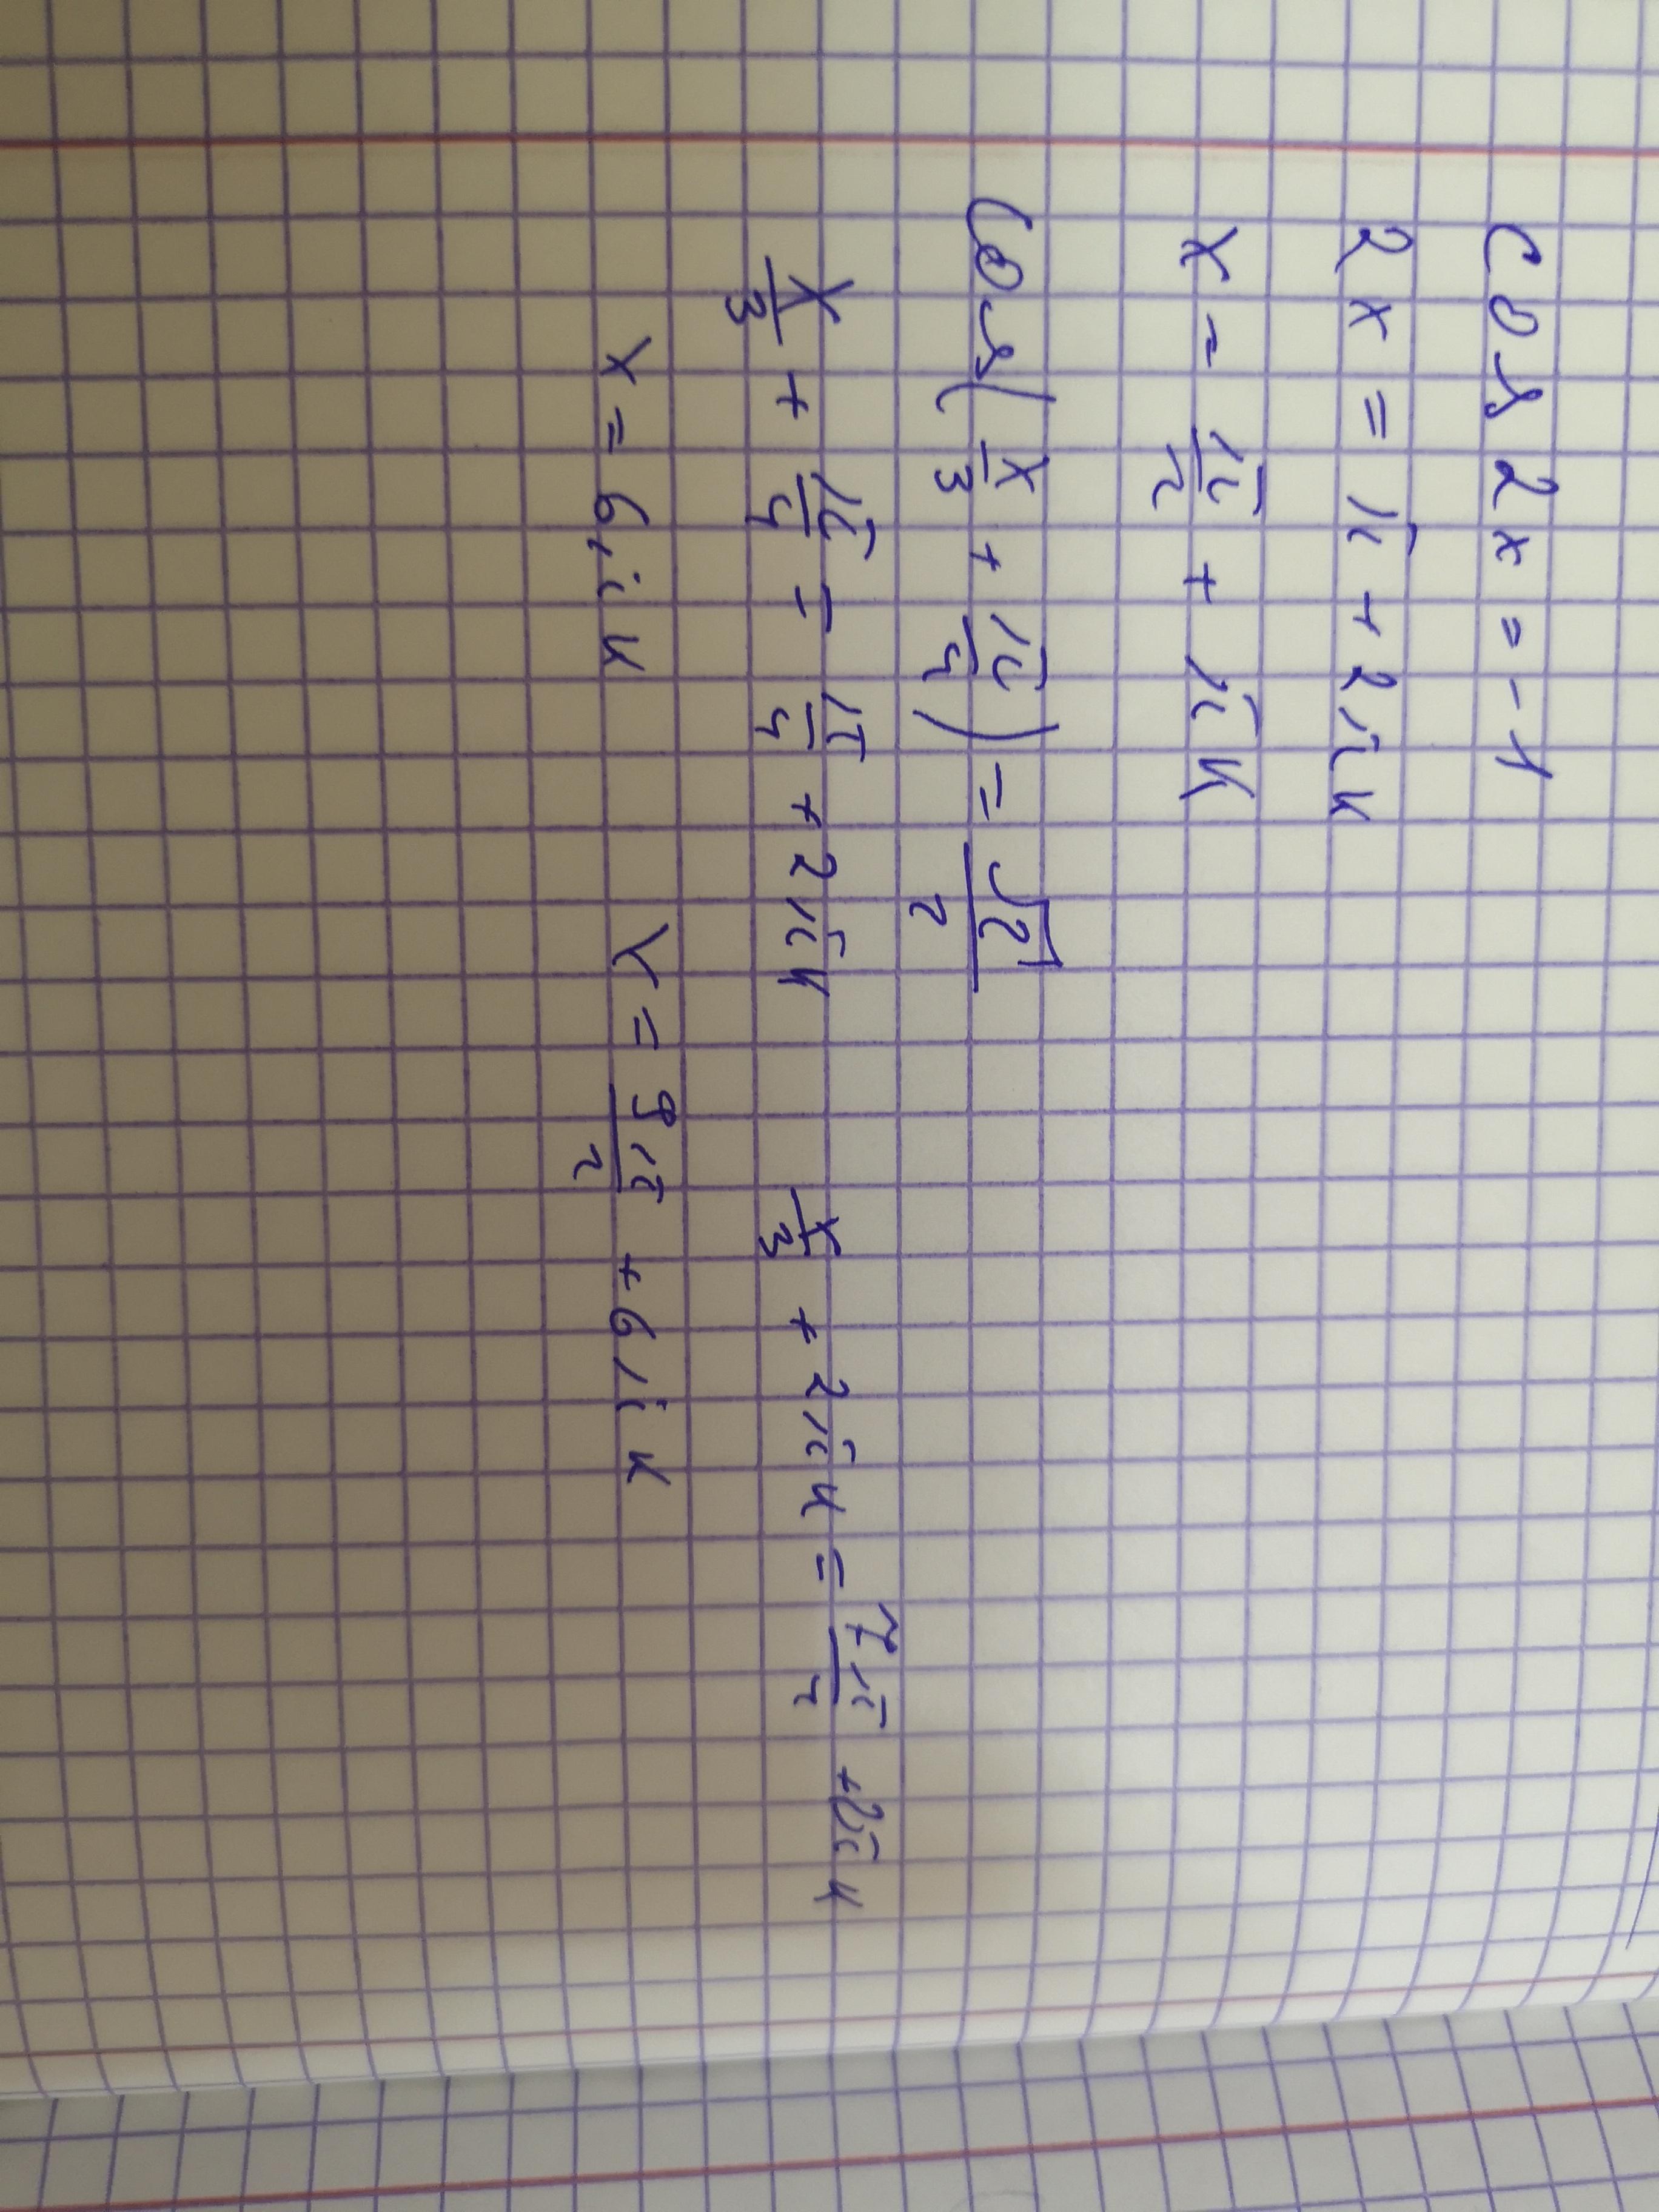 cos 2x = -1
2x = π + 2πk
x = π/2 + πk
cos(x/3 + π/4) = √2/2
x/3 + π/4 = π/4 + 2πk x/3 + 2πk = 7π/4 + 2πk
x = 6πk x = 9π/2 + 6πk